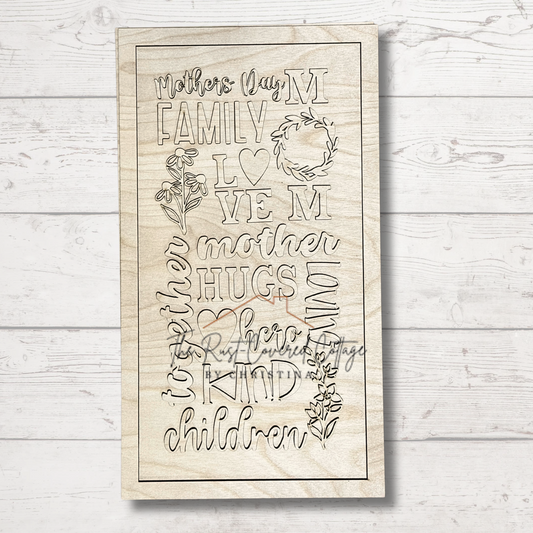 Mothers Day M
FAMILY
LOVE M
mother
together
HUGS
LOVING
hero
KIND
children
The Rust Covered Cottage
BY CHRISTINA